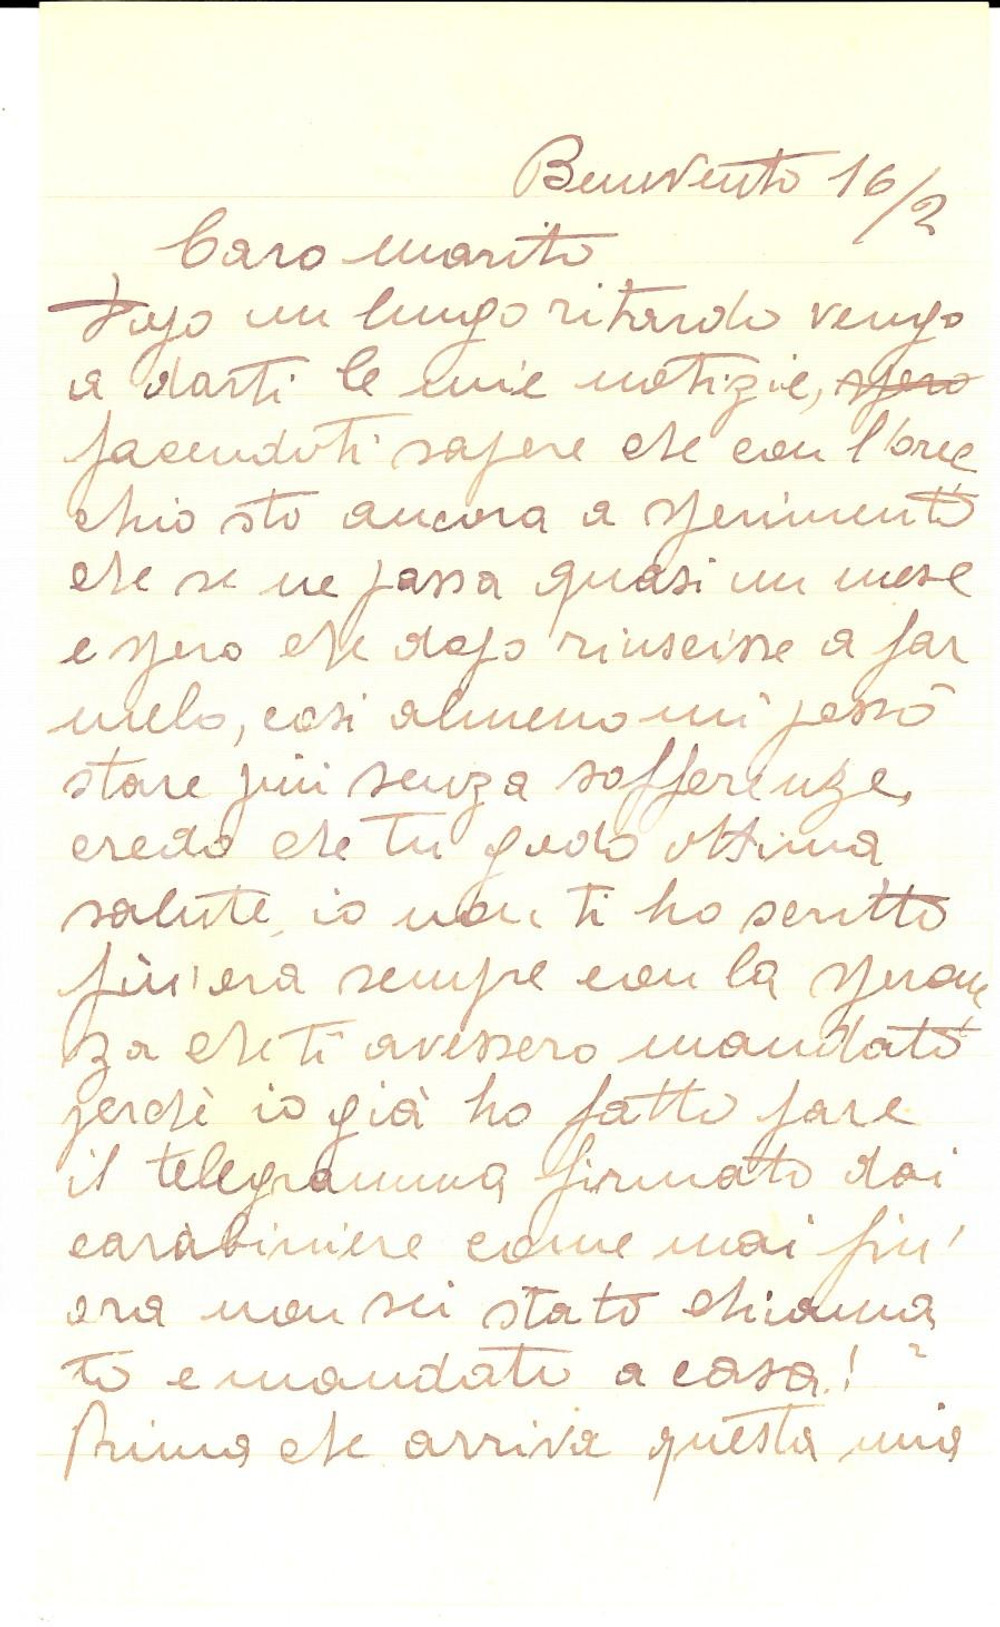 Benevento 16/2
Caro marito
Dopo un lungo ritardo vengo
a darti le mie notizie, spero
facendoti sapere che con l'orec
chio sto ancora a sperimento
che se ne passa quasi un mese
e spero che dopo riuscisse a far
melo, cosi almeno mi posso
stare più senza sofferenze,
credo che tu godo ottima
salute, io non ti ho scritto
fin'ora sempre con la speran
za che ti avessero mandato
perchè io già ho fatto fare
il telegramma firmato dai
carabiniere come mai fin'
ora non sei stato chiama
to e mandato a casa!?
Prima che arriva questa mia